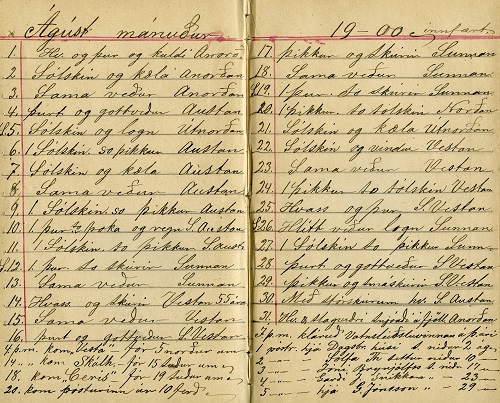 Ágúst mánuður
1. Hv. og þur og kuldi Anorð.
2. Sólskin og kæla Anorðan
3. Sama veður Anorðan
4. þurt og gottveður Austan
S.5. Sólskin og logn Utnorðan
6. 1 Sólskin. so þikkur Austan
7. Sólskin og kæla Austan
8. Sama veður Austan
9. 1 Sólskin. so þikkur Austan
10. 1 þur so þoka og regn S. Austan
11. 1 Sólskin. so þikkur S. aust.
S.12. 1 þur. so skúrir Sunnan
13. Sama veður Sunnan
14. Hvass og skúri Vestan
15. Sama veður Vestan
16. þurt og gottveður S. Vestan
4 p.m. kom Vesta - för norður
14 „ kom Skálh. - för 15 suður
18. kom "Ceris" - för 19 Suður
20. kom pósturinn úr 10 ferð
19-00
17. þikkur og skúrir Sunnan
18. Sama veður Sunnan
S.19. 1 þur so skúrir Sunnan
20. 1 þikkur so sólskin Norðan
21. Sólskin og kæla Utnorðan
22. Sólskin og vindur Vestan
23. Sama veður Vestan
24. 1 þikkur so Sólskin Vestan
25. Hvass og þur S. Vestan
S.26. Hlítt veður logn Sunnan
27. 1 Sólskin so þikkur Sunn-
28. þurt og gottveður S. Vestan
29. þikkur og smáskúrir S. Vestan
30. Með stórskúrum hv. S. Austan
31. Hv. og slagveður Snjóaði í fjöll Anorðan
póstr. hjá Dagsbr. húsi veður 2 ág.
2 - 10 -
3 - Brynjólfss. 17 -
4 - Garði 23 -
5 - hjá G. Jónsson 29 -